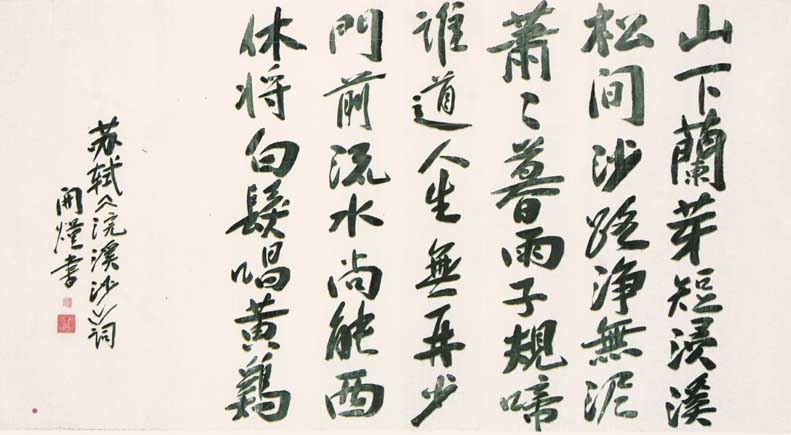 山下蘭芽短浸溪
松间沙路净無泥
蕭々暮雨子規啼
誰道人生無再少
門前流水尚能西
休将白髮唱黄鷄
苏轼《浣溪沙》词
開書